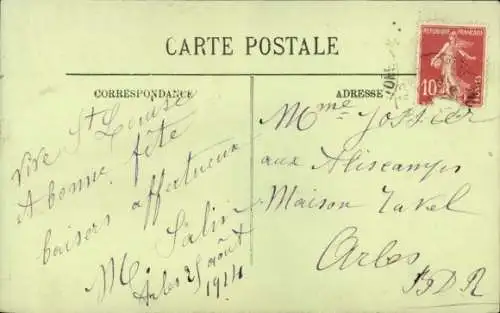 CARTE POSTALE
CORRESPONDANCE
ADRESSE
REPUBLIQUE FRANÇAISE
10
POSTES
Vive St Louise
et bonne fête
baisers affectueux
M. Salin
Arles 25 août
1914
Mme Jossier
aux Aliscamps
Maison Tavel
Arles
BDR